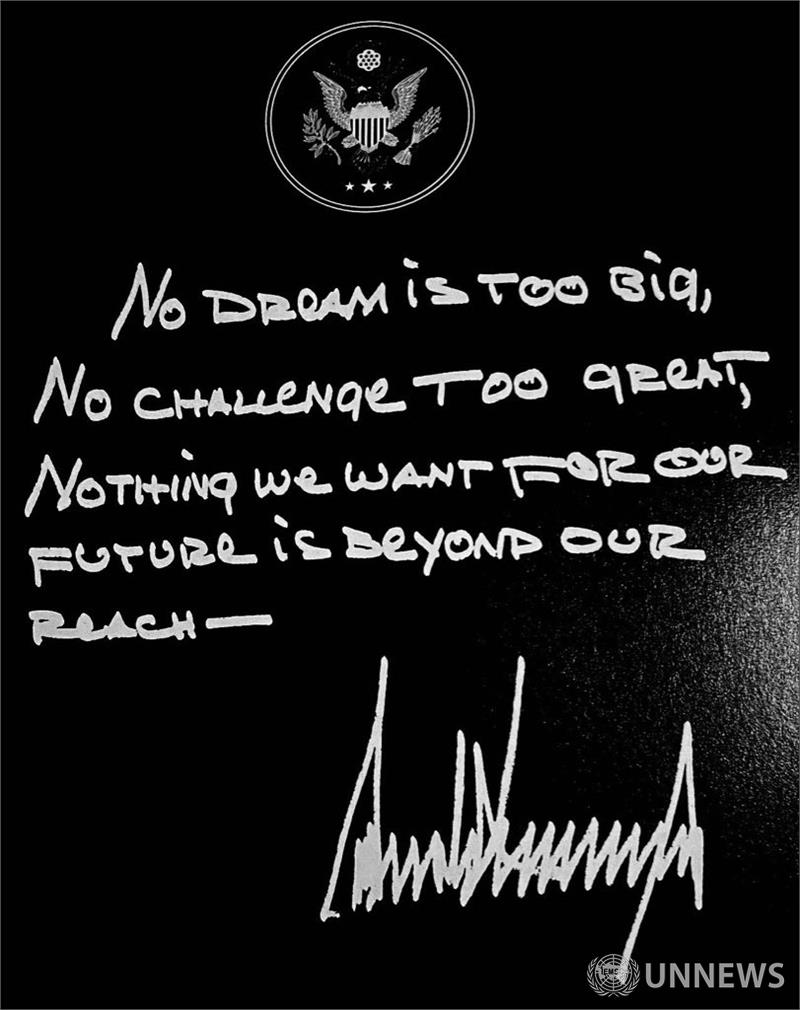 No DReAM is Too Big,
No CHALLeNge Too gReAT,
NoTHiNg we wANT FOR OUR
FUTURe is BeyoND OUR
ReACH —
UNNEWS